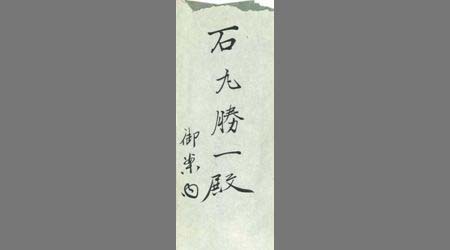 石丸勝一殿
御案内